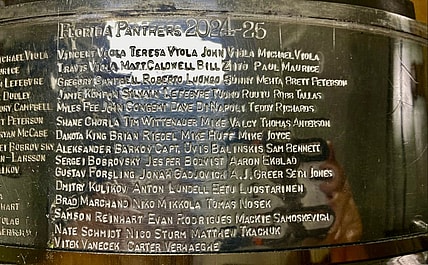 FLORIDA PANTHERS 2024-25
VINCENT VIOLA TERESA VIOLA JOHN VIOLA MICHAEL VIOLA
TRAVIS VIOLA MATT CALDWELL BILL ZITO PAUL MAURICE
GREGORY CAMPBELL ROBERTO LUONGO SUNNY MEHTA BRETT PETERSON
JAMIE KOMPON SYLVAIN LEFEBVRE TUOMO RUUTU ROBB TALLAS
MYLES FEE JOHN CONGENT DAVE DINAPOLI TEDDY RICHARDS
SHANE CHORLA TIM WITTENAUER MIKE VALCY THOMAS ANDERSON
DAKOTA KING BRIAN RIEDEL MIKE HUFF MIKE JOYCE
ALEKSANDER BARKOV CAPT. UVIS BALINSKIS SAM BENNETT
SERGEI BOBROVSKY JESPER BOQVIST AARON EKBLAD
GUSTAV FORSLING JONAH GADJOVICH A.J. GREER SETH JONES
DMITRY KULIKOV ANTON LUNDELL EETU LUOSTARINEN
BRAD MARCHAND NIKO MIKKOLA TOMAS NOSEK
SAMSON REINHART EVAN RODRIGUES MACKIE SAMOSKEVICH
NATE SCHMIDT NICO STURM MATTHEW TKACHUK
VITEK VANECEK CARTER VERHAEGHE